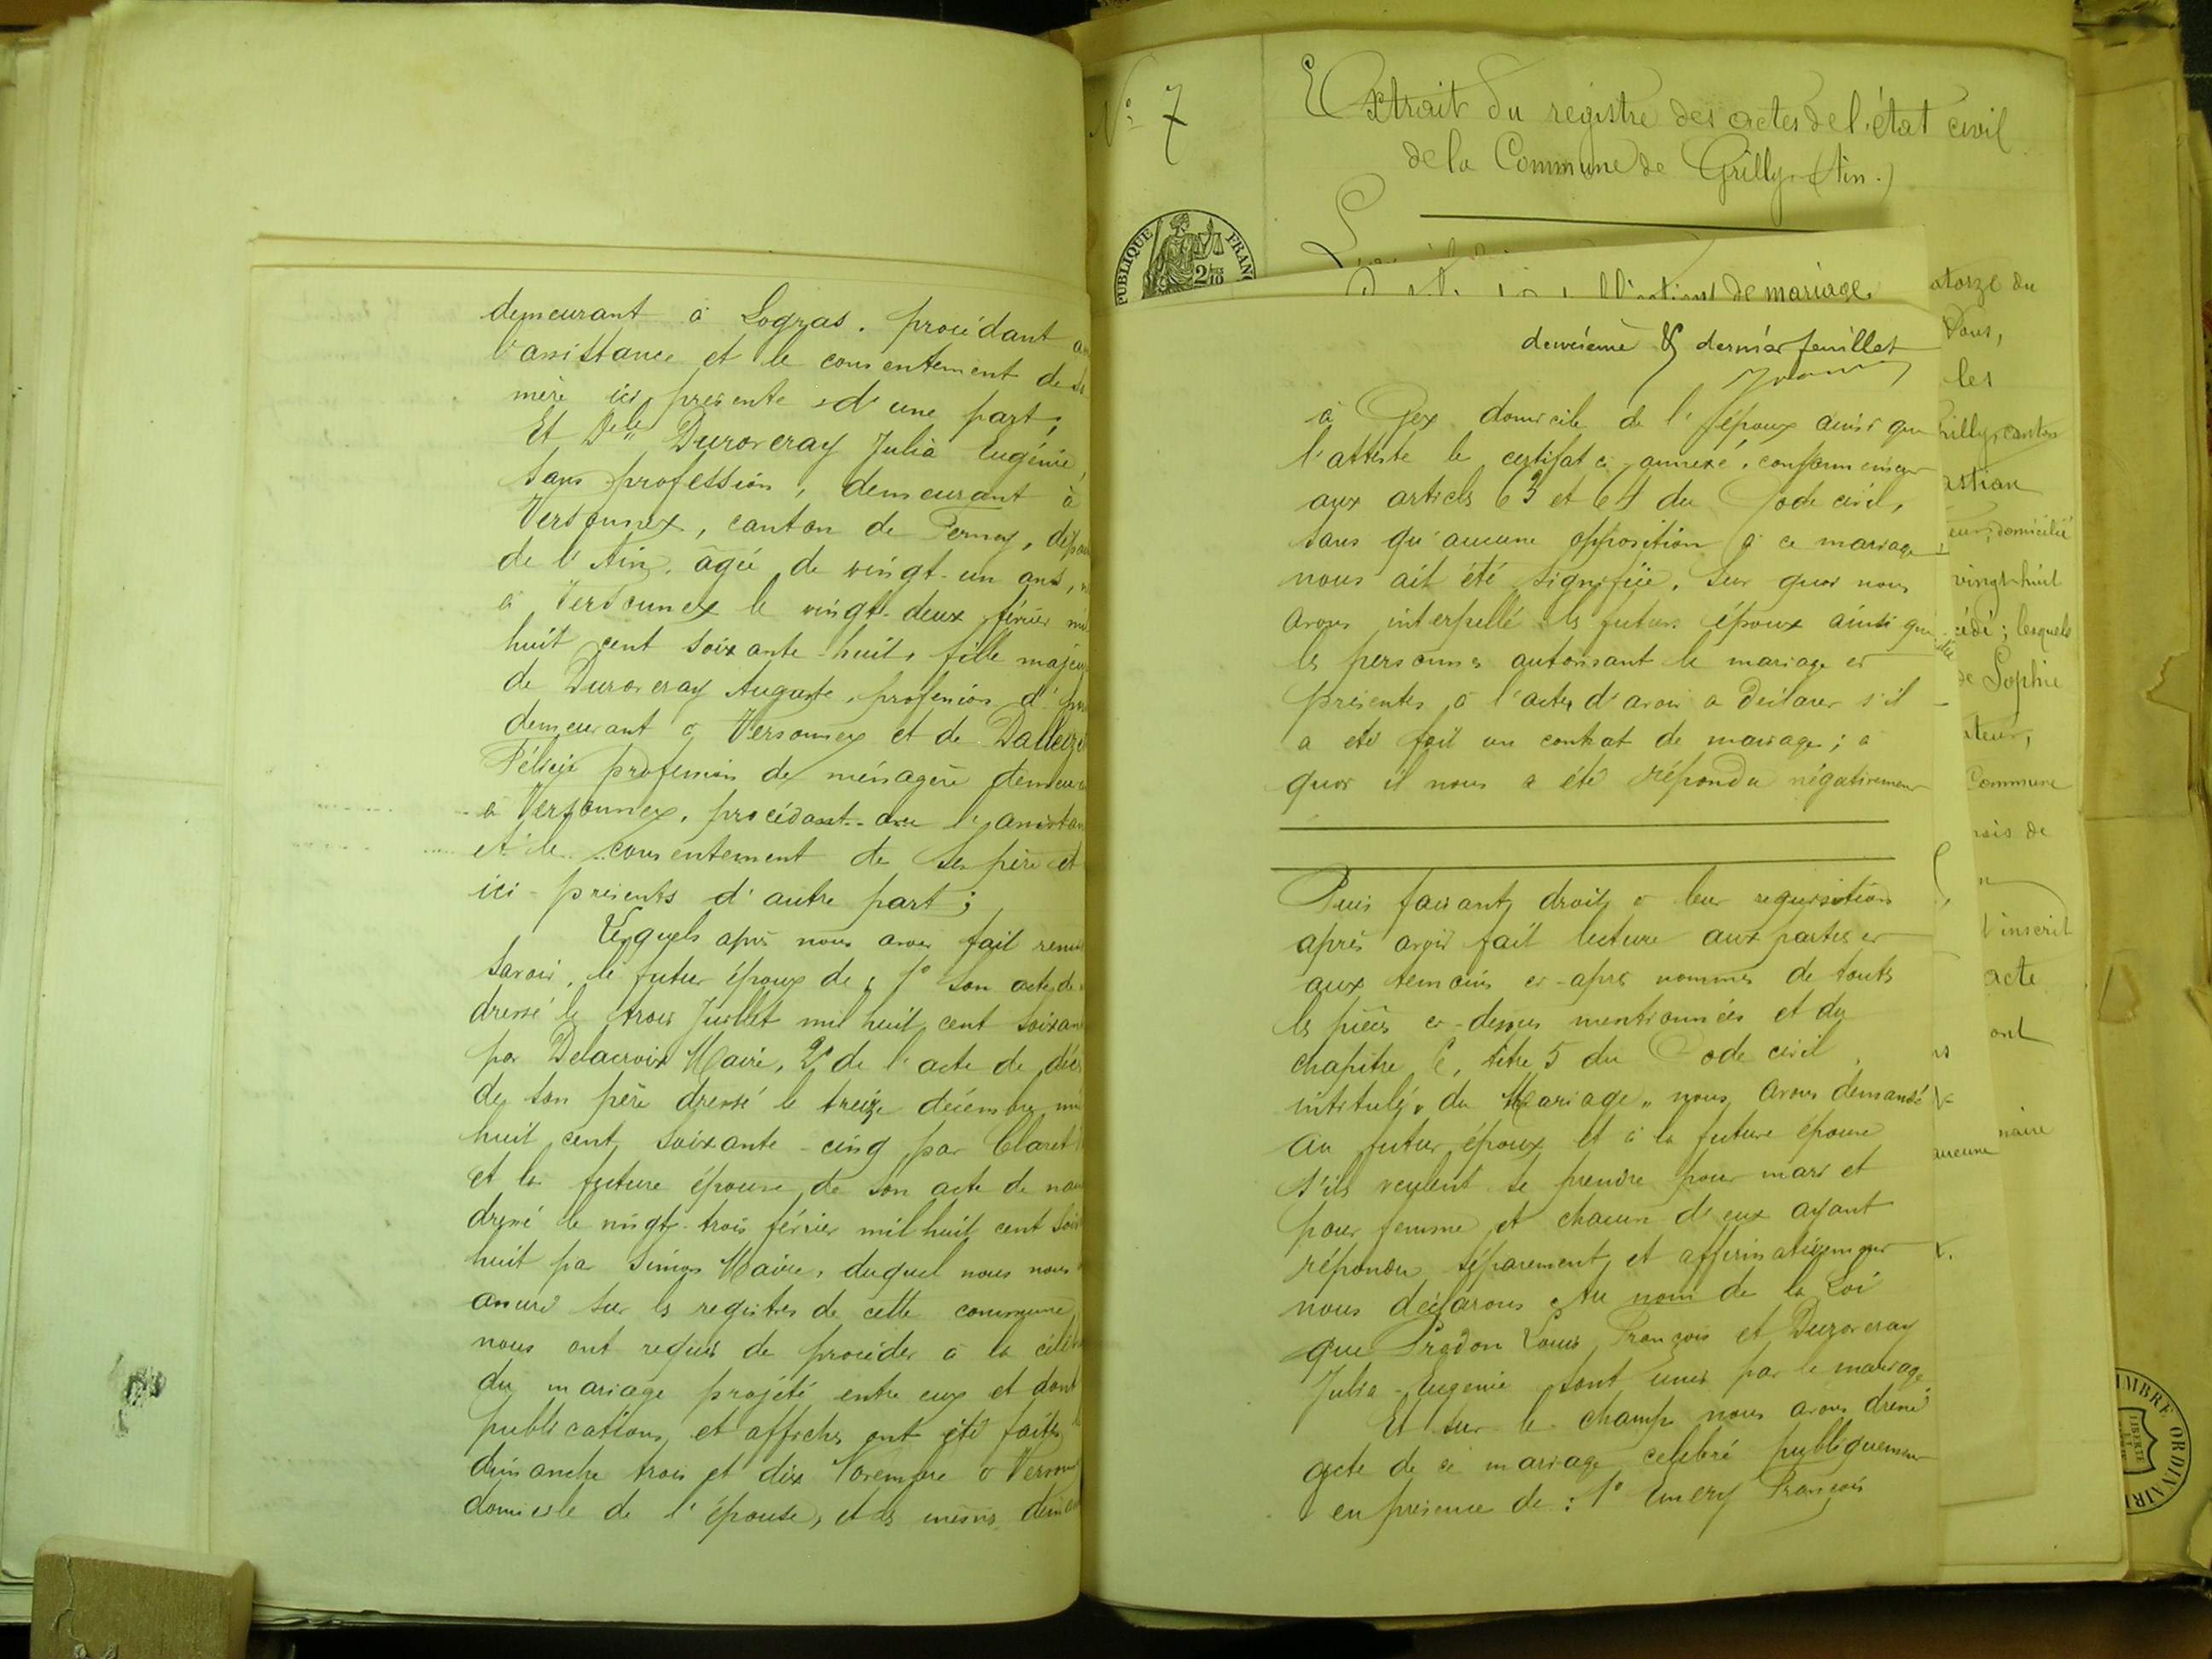 demeurant à Logras. procédant a
l'assistance et le consentement de sa
mère ici présente d'une part;
Et Delle Duroveray Julia Eugénie,
sans profession, demeurant à
Versonnex, canton de Ferney, dépar
de l'Ain, âgée de vingt-un ans, n
à Versonnex le vingt-deux février mil
huit cent soixante-huit, fille majeu
de Duroveray Auguste, profession d'
demeurant à Versonnex et de
Félicie profession de ménagère demeu
à Versonnex, procédant avec l'assistan
et le consentement de ses père et
ici-présents d'autre part;
Lesquels après nous avoir fait remi
Savoir, le futur époux de, 1° son acte de
dressé le trois Juillet mil huit cent soixan
par Delacroix Maire, 2° de l'acte de déc
de son père dressé le treize décembre mi
huit cent soixante-cinq par Claret
et la future épouse de son acte de nai
dressé le vingt-trois février mil huit cent soix
huit par Simon Maire, duquel nous nous
assuré sur les registres de cette commune
nous ont requis de procéder à la célé
du mariage projeté entre eux et dont
publications et affiches ont été faites
dimanche trois et dix Novembre à Verson
domicile de l'épouse, et les mêmes diman
N° 7
Extrait du registre des actes de l'état civil
de la Commune de Grilly (Ain.)
PUBLIQUE FRANÇ
2
10
de mariage.
deuxième & dernier feuillet
à Gex domicile de l'époux ainsi que
l'atteste le certifat ci annexé, conformément
aux articls 63 et 64 du Code civil,
sans qu'aucune opposition à ce mariage
nous ait été signifiée, sur quoi nous
avons interpellé les futurs époux ainsi que
les personnes autorisant le mariage et
présentes à l'acte d'avoir a déclarer s'il
a été fait un contrat de mariage; à
quoi il nous a été répondu négativement
Puis faisant droit à leur requisition
après avoir fait lecture aux parties et
aux temoins ci-après nommés de touts
les pièces ci-dessus mentionnées et du
chapitre 6, titre 5 du Code civil
intitulé "du Mariage" nous avons demandé
au futur époux et à la future épouse
s'ils veulent se prendre pour mari et
pour femme et chacun d'eux ayant
répondu séparement et affirmativement
nous déclarons Au nom de la Loi
que Prodon Louis François et Duroveray
Julia-Eugenie sont unis par le mariage
Et sur le champ nous avons dressé
acte de ce mariage celebré publiquement
en présence de: 1° Emery François
atorze du
les
rilly, canton
astian
eur, domicilié
vingt-huit
cédé; lesquels
de Sophie
ateur,
Commune
l'inscrit
acte
ont
naire
aucune
TIMBRE ORDINAIRE